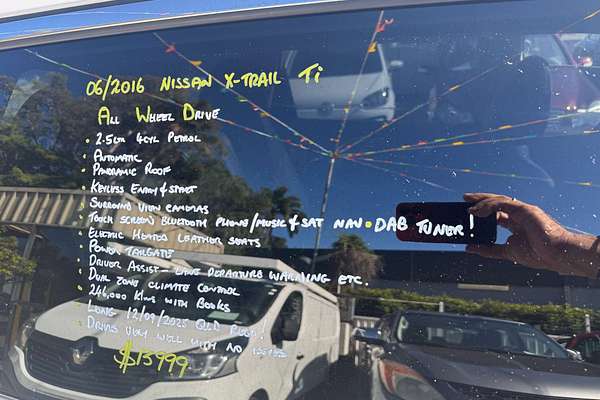 06/2016 NISSAN X-TRAIL Ti
ALL WHEEL DRIVE
• 2.5LTR 4CYL PETROL
• AUTOMATIC
• PANORAMIC ROOF
• KEYLESS ENTRY & START
• SURROUND VIEW CAMERAS
• TOUCH SCREEN BLUETOOTH PHONE/MUSIC & SAT NAV • DAB TUNER!
• ELECTRIC HEATED LEATHER SEATS
• POWER TAILGATE
• DRIVER ASSIST - LANE DEPARTURE WARNING ETC.
• DUAL ZONE CLIMATE CONTROL
• 246,000 KMS WITH BOOKS
• LONG 12/09/2025 QLD REGO!
• DRIVES VERY WELL WITH NO ISSUES
$13999